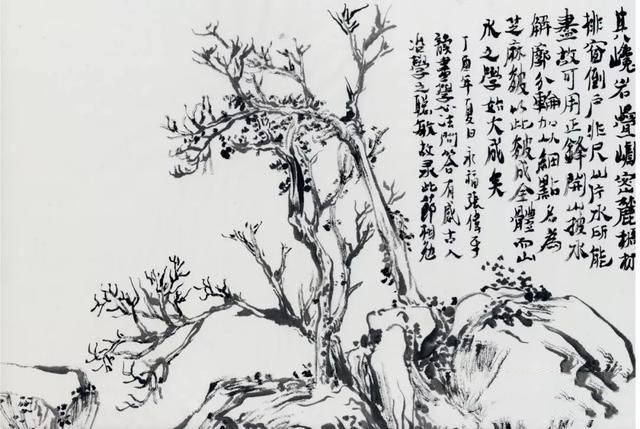 其巉岩疊巘密麓
排窗倒户非尺山片水所能
盡故可用正鋒開山披水
解廓分輪加以細點名為
芝麻皴以此皴成全體而山
水之學始大成矣
丁酉年夏日永福張偉平
讀畫學心法問答有感古人
治學之聰敏故录此節相勉